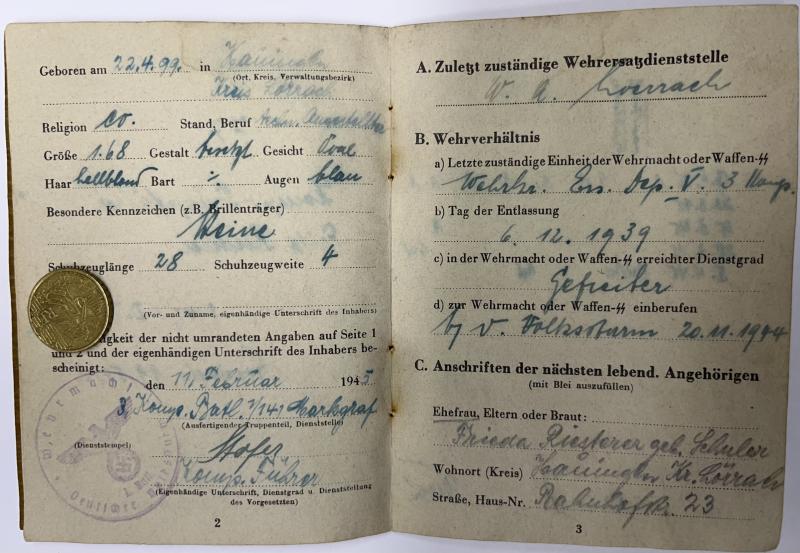 Geboren am 22.4.99. in Hauingen
(Ort, Kreis, Verwaltungsbezirk)
Kreis Lörrach
Religion ev. Stand, Beruf
Größe 1.68 Gestalt besetzt Gesicht Oval
Haar hellblond Bart ∕. Augen blau
Besondere Kennzeichen (z.B. Brillenträger)
Keine
Schuhzeuglänge 28 Schuhzeugweite 4
(Vor- und Zuname, eigenhändige Unterschrift des Inhabers)
igkeit der nicht umrandeten Angaben auf Seite 1
und 2 und der eigenhändigen Unterschrift des Inhabers be-
scheinigt:
den 11. Februar 1945
3. Komp. Batl. 7/141 Markgraf
(Ausfertigender Truppenteil, Dienststelle)
(Dienststempel) Hofer
Komp. Führer
(Eigenhändige Unterschrift, Dienstgrad u. Dienststellung
des Vorgesetzten)
2
A. Zuletzt zuständige Wehrersatzdienststelle
W. A. Loerrach
B. Wehrverhältnis
a) Letzte zuständige Einheit der Wehrmacht oder Waffen-SS
Wehrkr. Ers. Dep. V. 3 Komp.
b) Tag der Entlassung
6. 12. 1939
c) in der Wehrmacht oder Waffen-SS erreichter Dienstgrad
Gefreiter
d) zur Wehrmacht oder Waffen-SS einberufen
z. V. Volkssturm 20.11.1944
C. Anschriften der nächsten lebend. Angehörigen
(mit Blei auszufüllen)
Ehefrau, Eltern oder Braut:
Frieda Riesterer geb. Schuler
Wohnort (Kreis) Hauingen Kr. Lörrach
Straße, Haus-Nr. Bahnhofstr. 23
3